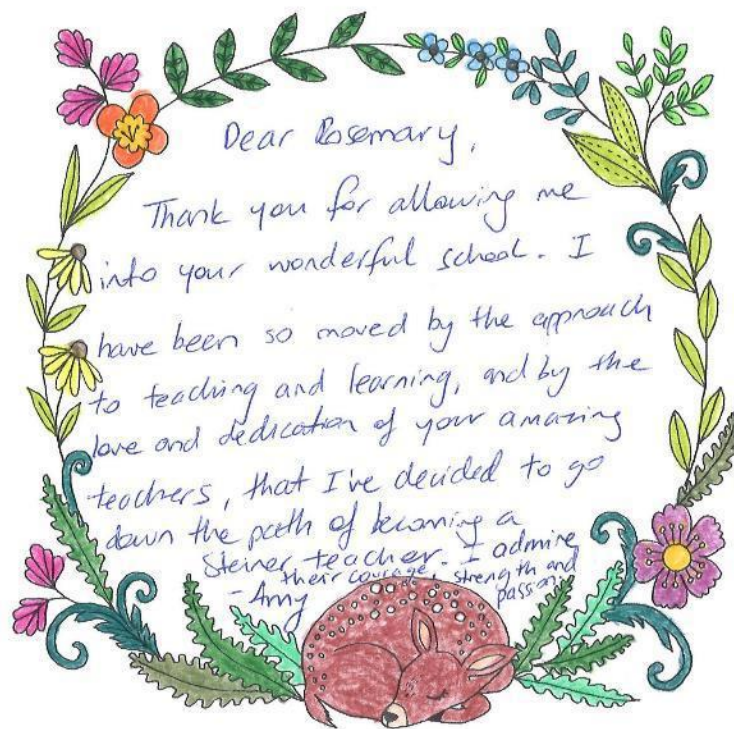 Dear Rosemary,
Thank you for allowing me
into your wonderful school. I
have been so moved by the approach
to teaching and learning, and by the
love and dedication of your amazing
teachers, that I've decided to go
down the path of becoming a
Steiner teacher. I admire
their courage, strength and
passion.
- Amy